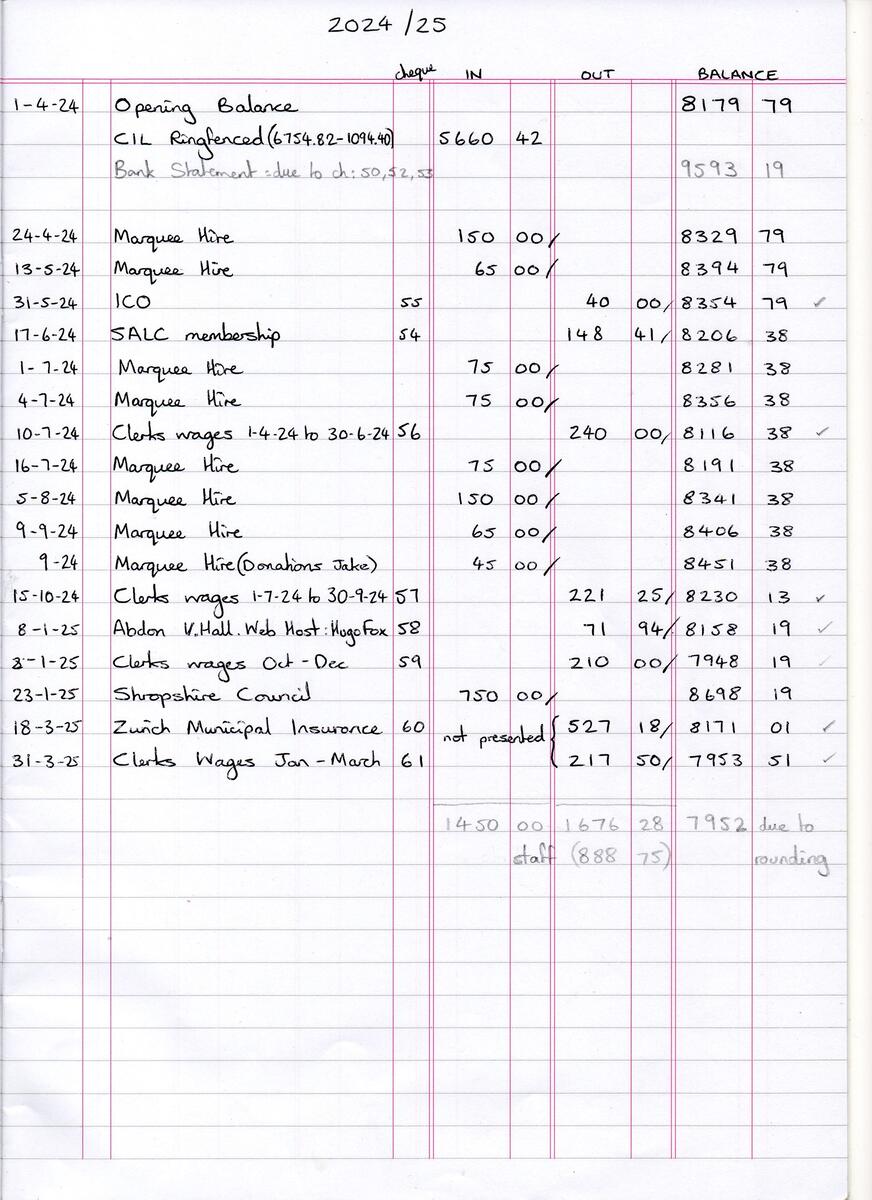 2024/25
cheque IN OUT BALANCE
1-4-24 Opening Balance 8179 79
CIL Ringfenced (6754.82-1094.40) 5660 42
Bank Statement = due to ch: 50,52,53 9593 19
24-4-24 Marquee Hire 150 00/ 8329 79
13-5-24 Marquee Hire 65 00/ 8394 79
31-5-24 ICO 55 40 00/ 8354 79 ✓
17-6-24 SALC membership 54 148 41/ 8206 38
1-7-24 Marquee Hire 75 00/ 8281 38
4-7-24 Marquee Hire 75 00/ 8356 38
10-7-24 Clerks wages 1-4-24 to 30-6-24 56 240 00/ 8116 38 ✓
16-7-24 Marquee Hire 75 00/ 8191 38
5-8-24 Marquee Hire 150 00/ 8341 38
9-9-24 Marquee Hire 65 00/ 8406 38
9-24 Marquee Hire (Donations Jake) 45 00/ 8451 38
15-10-24 Clerks wages 1-7-24 to 30-9-24 57 221 25/ 8230 13 ✓
8-1-25 Abdon V.Hall. Web Host: HugoFox 58 71 94/ 8158 19 ✓
8-1-25 Clerks wages Oct-Dec 59 210 00/ 7948 19 ✓
23-1-25 Shropshire Council 750 00/ 8698 19
18-3-25 Zurich Municipal Insurance 60 not presented { 527 18/ 8171 01 ✓
31-3-25 Clerks Wages Jan-March 61 217 50/ 7953 51 ✓
1450 00 1676 28 7952 due to
staff (888 75) rounding